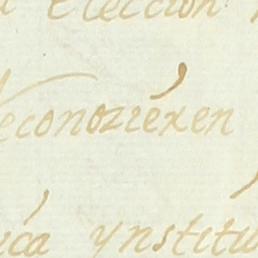 eleccion
reconozièxen
ica ynstitu